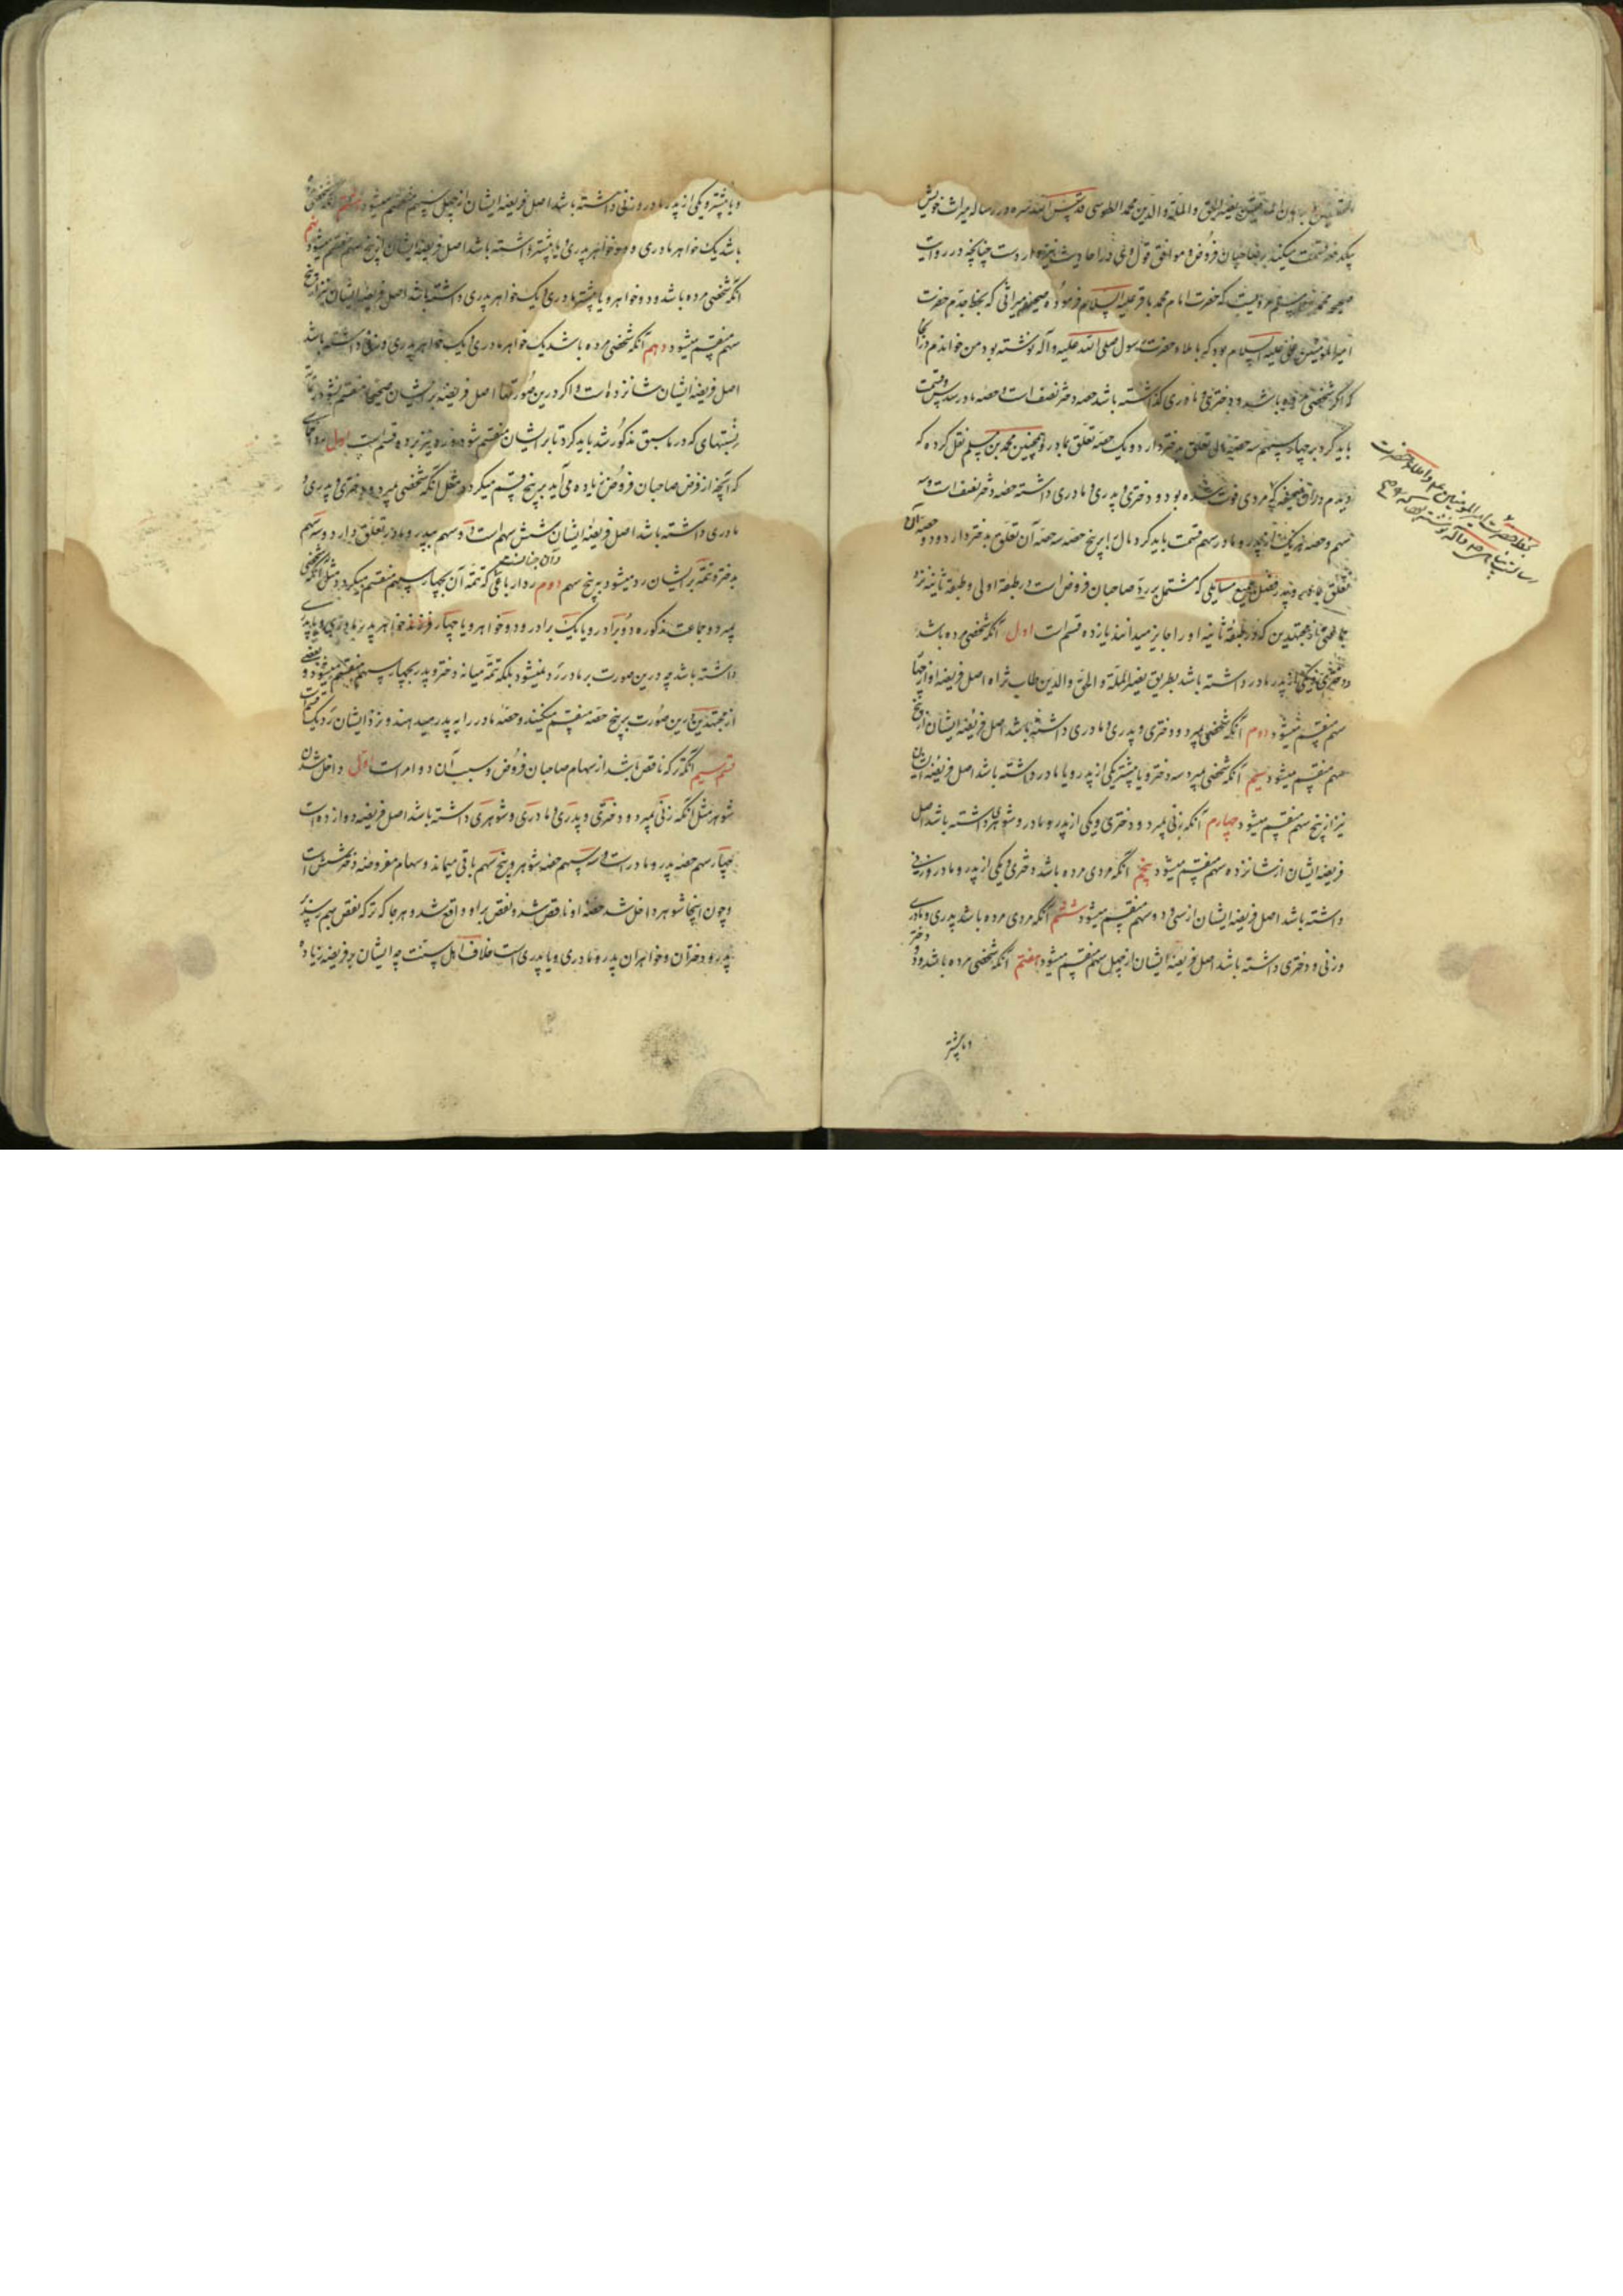 نصیر الحق و الملة و الدین محمد الطوسی قدس الله سره در رساله میراث خویش
صاحبان فروض و موافق قول وی در احادیث نیز وارد است چنانچه در روایت
صحیحه محمد بن مسلم مرویست که حضرت امام محمد باقر علیه السلام فرموده صحیفه میراثی که بخط جدم حضرت
امیرالمؤمنین علی علیه السلام بود که باملاء حضرت رسول صلی الله علیه و آله نوشته بود من خواندم در آنجا
که اگر شخصی مرده باشد و دختری و مادری گذاشته باشد حصه دختر نصف است و حصه مادر سدس و قسمت
باید کرد بر چهار سهم سه حصه مال تعلق بدختر دارد و یک حصه تعلق بمادر و همچنین محمد بن مسلم نقل کرده که
دیدم در آن صحیفه که مردی فوت شده بود و دختری و پدری و مادری داشته حصه دختر نصف است و سه
سهم و حصه هر یک از پدر و مادر سهم قسمت باید کرد مال را بر پنج حصه سه حصه آن تعلق بدختر دارد و دو حصه آن
متعلق بمادر و پدر فصل جمیع مسایلی که مشتمل بر رد صاحبان فروض است در طبقه اولی و طبقه ثانیه نزد
جماعتی از مجتهدین که در طبقه ثانیه او را جایز میدانند یازده قسم است اول آنکه شخصی مرده باشد
و دختری و یکی از پدر مادر داشته باشد بطریق نصیر الملة و الحق و الدین طاب ثراه اصل فریضه او از چهار
سهم منقسم میشود دوم آنکه شخصی بمیرد و دختری و پدری و مادری داشته باشد اصل فریضه ایشان از پنج
سهم منقسم میشود سیم آنکه شخصی بمیرد سه دختر و یا بیشتر و یکی از پدر و یا مادر داشته باشد اصل فریضه ایشان
نیز از پنج سهم منقسم میشود چهارم آنکه زنی بمیرد و دختری و یکی از پدر و مادر و شوهری داشته باشد اصل
فریضه ایشان از شانزده سهم منقسم میشود پنجم آنکه مردی مرده باشد دختری و یکی از پدر و مادر و زنی
داشته باشد اصل فریضه ایشان از سی و دو سهم منقسم میشود ششم آنکه مردی مرده باشد پدری و مادری
و زنی و دختری داشته باشد اصل فریضه ایشان از چهل سهم منقسم میشود هفتم آنکه شخصی مرده باشد و دو دختر
و یا بیشتر
بخط حضرت امیرالمؤمنین علی و املاء حضرت
و یا بیشتر و یکی از پدر مادر و زنی داشته باشد اصل فریضه ایشان از چهل سهم منقسم میشود هشتم آنکه شخصی مرده
باشد یک خواهر مادری و دو خواهر پدری و یا بیشتر داشته باشد اصل فریضه ایشان از پنج سهم منقسم میشود نهم
آنکه شخصی مرده باشد و دو خواهر و یا بیشتر مادری و یک خواهر پدری داشته باشد اصل فریضه ایشان نیز از پنج
سهم منقسم میشود دهم آنکه شخصی مرده باشد یک خواهر مادری و یک خواهر پدری و زنی داشته باشد
اصل فریضه ایشان شانزده است و اگر درین صورتها اصل فریضه بر ایشان صحیحا منقسم نشود
نسبتهای که در ما سبق مذکور شد باید کرد تا بر ایشان منقسم شود و رد نیز بر دو قسم است اول رد
که آنچه از فرض صاحبان فروض زیاده می آید بر پنج قسم میگردد مثل آنکه شخصی بمیرد و دختری و پدری و
مادری داشته باشد اصل فریضه ایشان شش سهم است دو سهم بپدر و مادر تعلق دارد و سه سهم
بدختر و تتمه بر ایشان رد میشود بر پنج سهم دوم رد ارباعی و آن چنانست که تتمه آن بچهار سهم منقسم میگردد مثل آنکه شخصی
بمیرد و جماعت مذکوره و دو برادر و یا یک برادر و دو خواهر و یا چهار خواهر پدر مادری و یا پدری
داشته باشد چه درین صورت بر مادر رد نمیشود بلکه تتمه میانه دختر و پدر بچهار سهم منقسم میشود و بعضی
از مجتهدین درین صورت بر پنج حصه منقسم میکنند و حصه مادر را به پدر میدهند و نزد ایشان رد یک قسمست
قسم سیم آنکه ترکه ناقص باشد از سهام صاحبان فروض و سبب آن دو امر است اول داخل شدن
شوهر مثل آنکه زنی بمیرد و دختری و پدری و مادری و شوهری داشته باشد اصل فریضه دوازده است
چهار سهم حصه پدر و مادر است و سه سهم حصه شوهر و پنج سهم باقی میماند و سهام مفروضه دختر شش است
و چون اینجا شوهر داخل شد حصه او ناقص شد و نقص بر او واقع شد و هر جا که ترکه نقص بهم رسد بر
پدر و دختران و خواهران پدر و مادری و یا پدری است خلاف اهل سنت چه ایشان بر فریضه زیاده